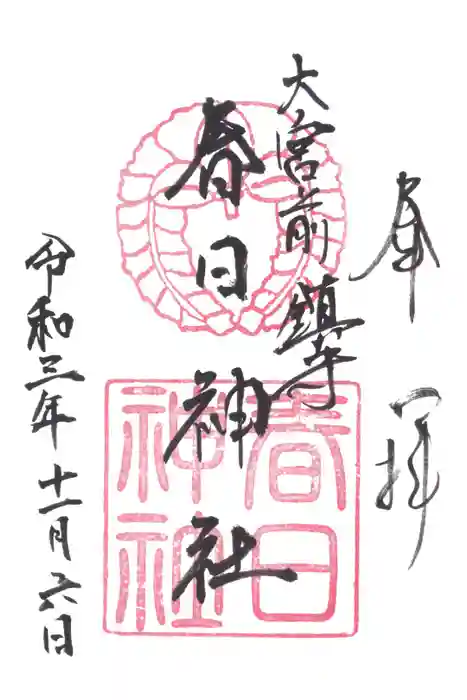 奉拝
大宮前鎮守
春日神社
令和三年十一月六日
春日
神社